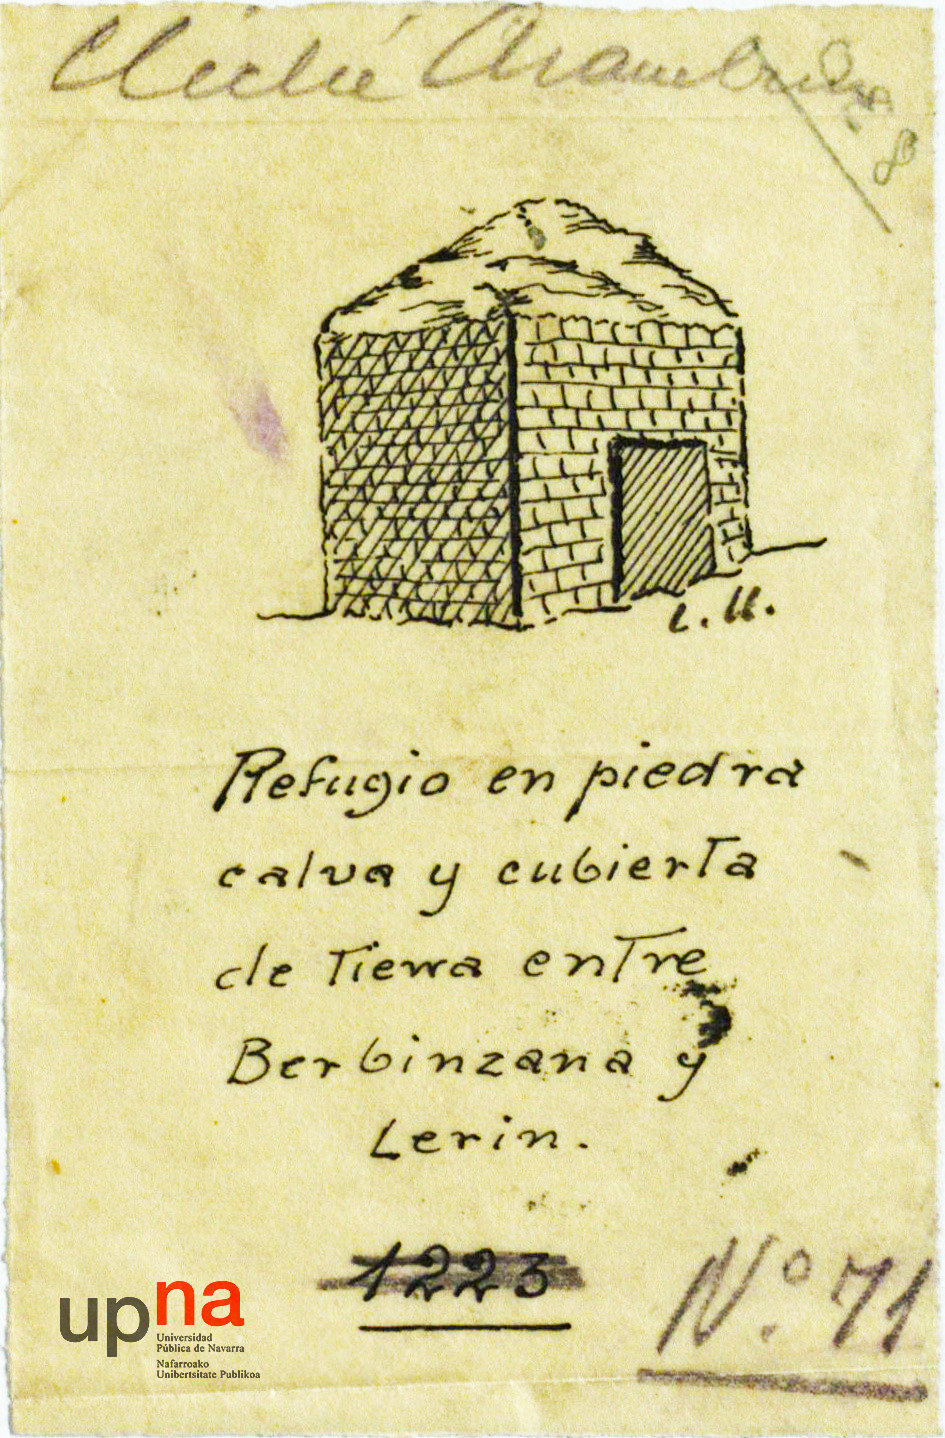 Cliché Aramburu
8
L.U.
Refugio en piedra
calva y cubierta
de Tierra enTre
Berbinzana y
Lerin.
1223
Nº. 71
upna
Universidad
Pública de Navarra
Nafarroako
Unibertsitate Publikoa